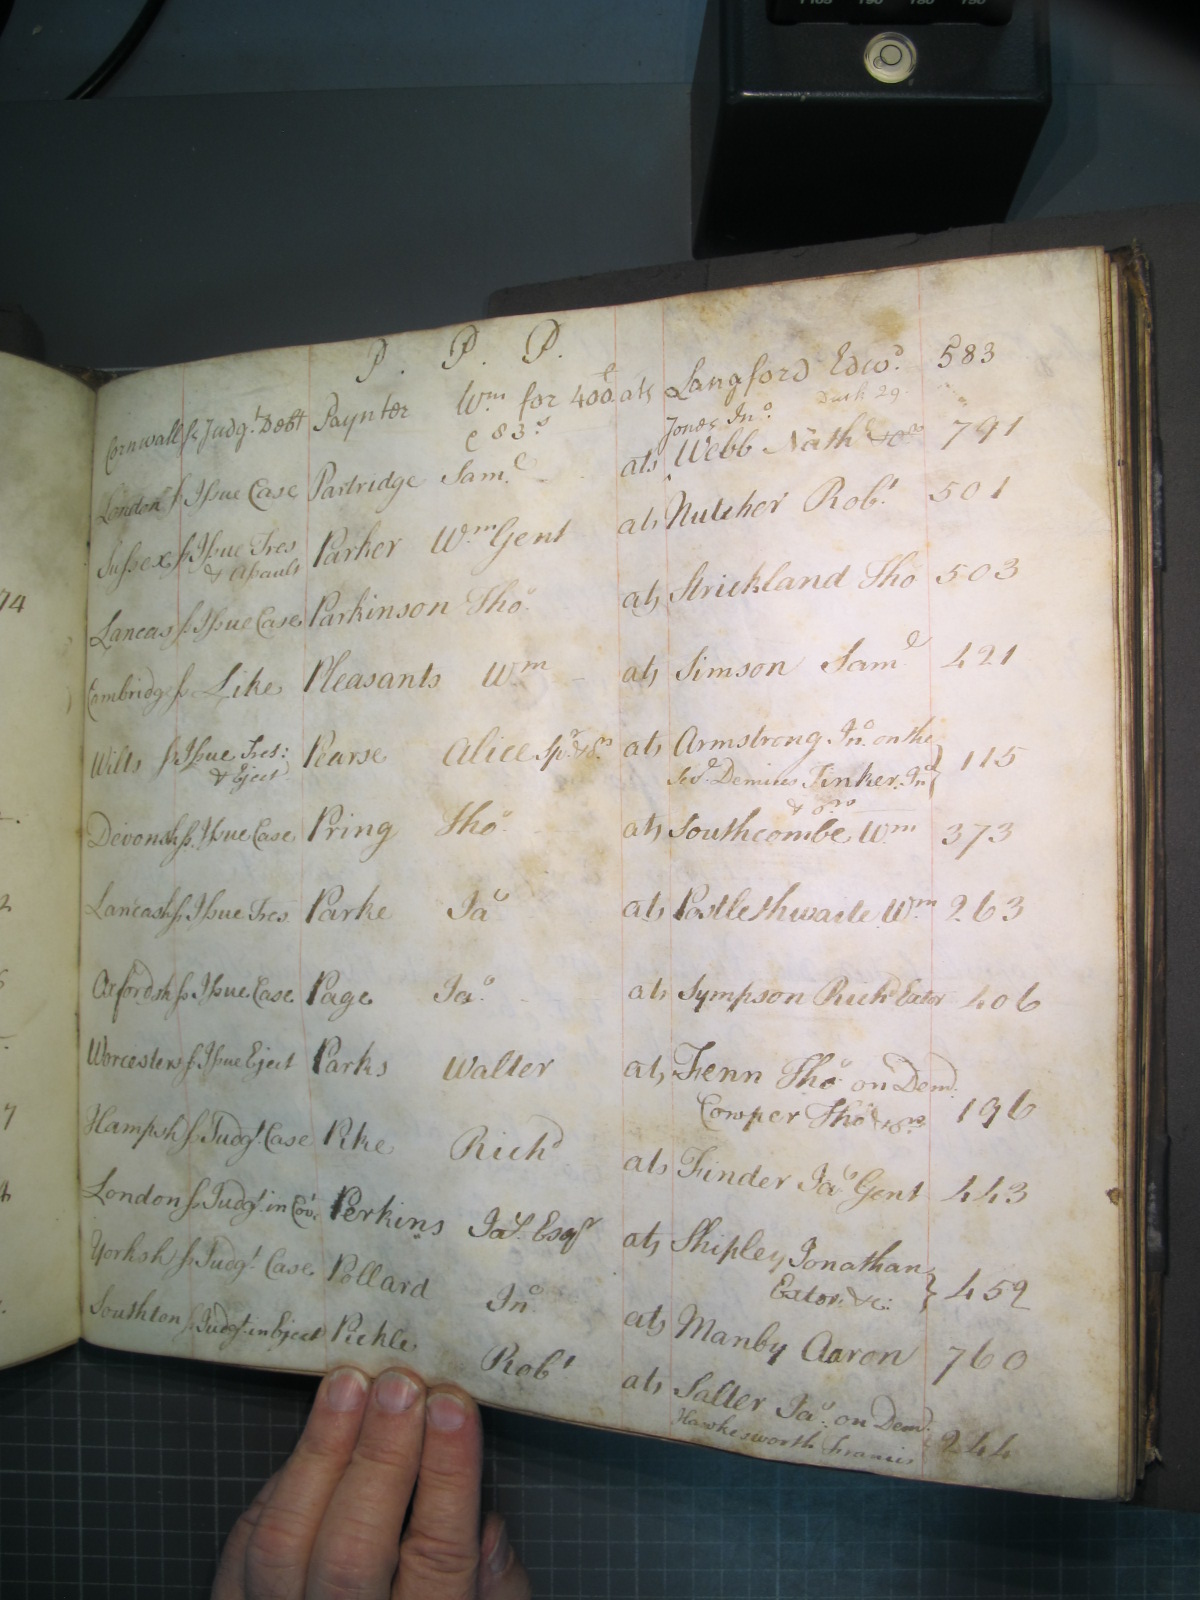 P. P. P.
Cornwall ss Judgt. Debt Paynter Wm for 400£ ats Langford Edwd. 583
e 83s Jones Jno. Duck 29.
London ss Issue Case Partridge Saml. ats Webb Nath & ors 791
Sussex ss Issue Tres Parker Wm Gent ats Nutcher Robt. 501
& Assault
Lancas ss Issue Case Parkinson Tho. ats Strickland Tho 503
Cambridge ss Like Pleasants Wm ats Simson Saml 421
Wilts ss Issue Tres: Pearse Alice Spr & or ats Armstrong Jno. on the } 115
& Eject Sevl. Demises Tinker Jno
& ors
Devonsh ss Issue Case Pring Tho. ats Southcombe Wm 373
Lancash ss Issue Tres. Parke Jas ats Postlethwaite Wm 263
Oxfordsh ss Issue Case Page Jas. ats Sympson Richd Exτοr 406
Worcester ss Issue Eject Parks Walter ats Fenn Tho on Dem.
Cowper Tho & ors 196
Hampsh ss Judgt. Case Pike Richd ats Finder Jas Gent 443
London ss Judgt. in Cov. Perkins Jas. Esqr ats Shipley Jonathan } 459
Extor. &c:
Yorksh ss Judgt. Case Pollard Jno ats Manby Aaron 760
Southton ss Judgt. in Eject Pickle Robt ats Salter Jas. on Dem. 244
Hawkesworth Francis
74
7